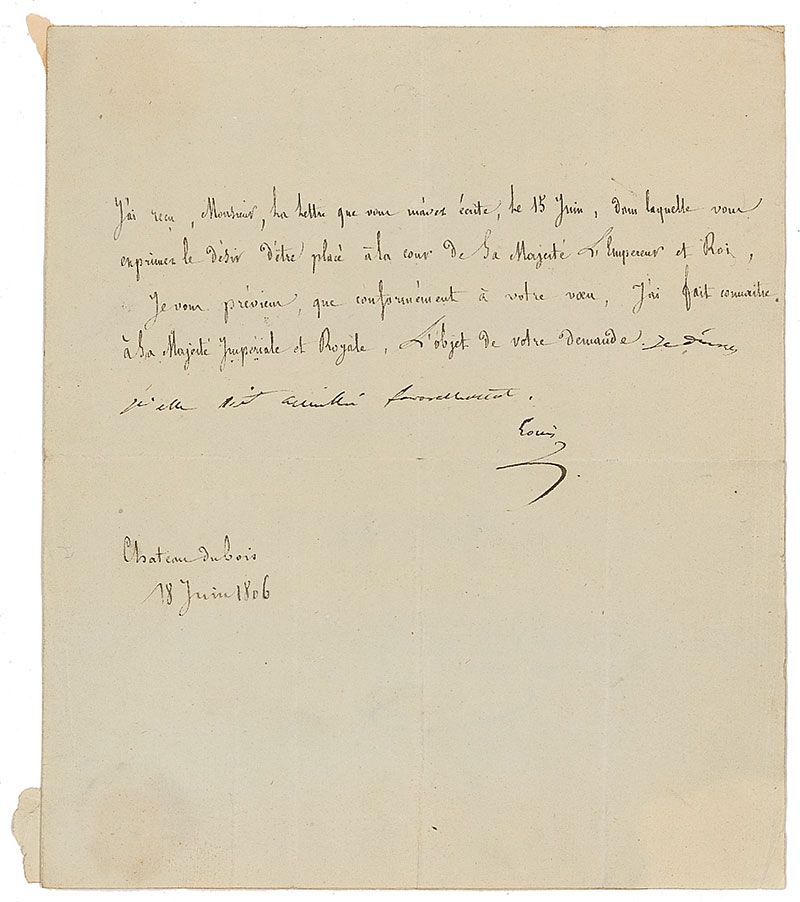 J'ai reçu, Monsieur, la Lettre que vous m'avez écrite, le 15 Juin, dans laquelle vous
exprimez le désir d'être placé à la cour de Sa Majesté L'Empereur et Roi,
Je vous préviens, que conformément à votre vœu, J'ai fait connaitre.
à Sa Majesté Impériale et Royale, L'objet de votre demande. Je désire
qu'elle soit accueillie favorablement.
Louis
Chateau du bois
18 Juin 1806